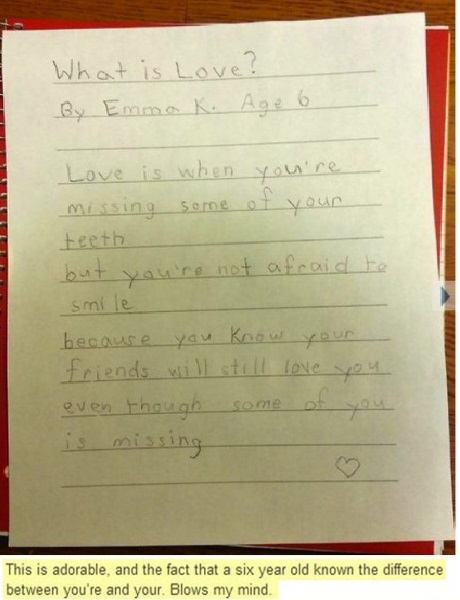 What is Love?
By Emma K. Age 6
Love is when you're
missing some of your
teeth
but you're not afraid to
smile
because you know your
friends will still love you
even though some of you
is missing
♡
This is adorable, and the fact that a six year old known the difference
between you're and your. Blows my mind.